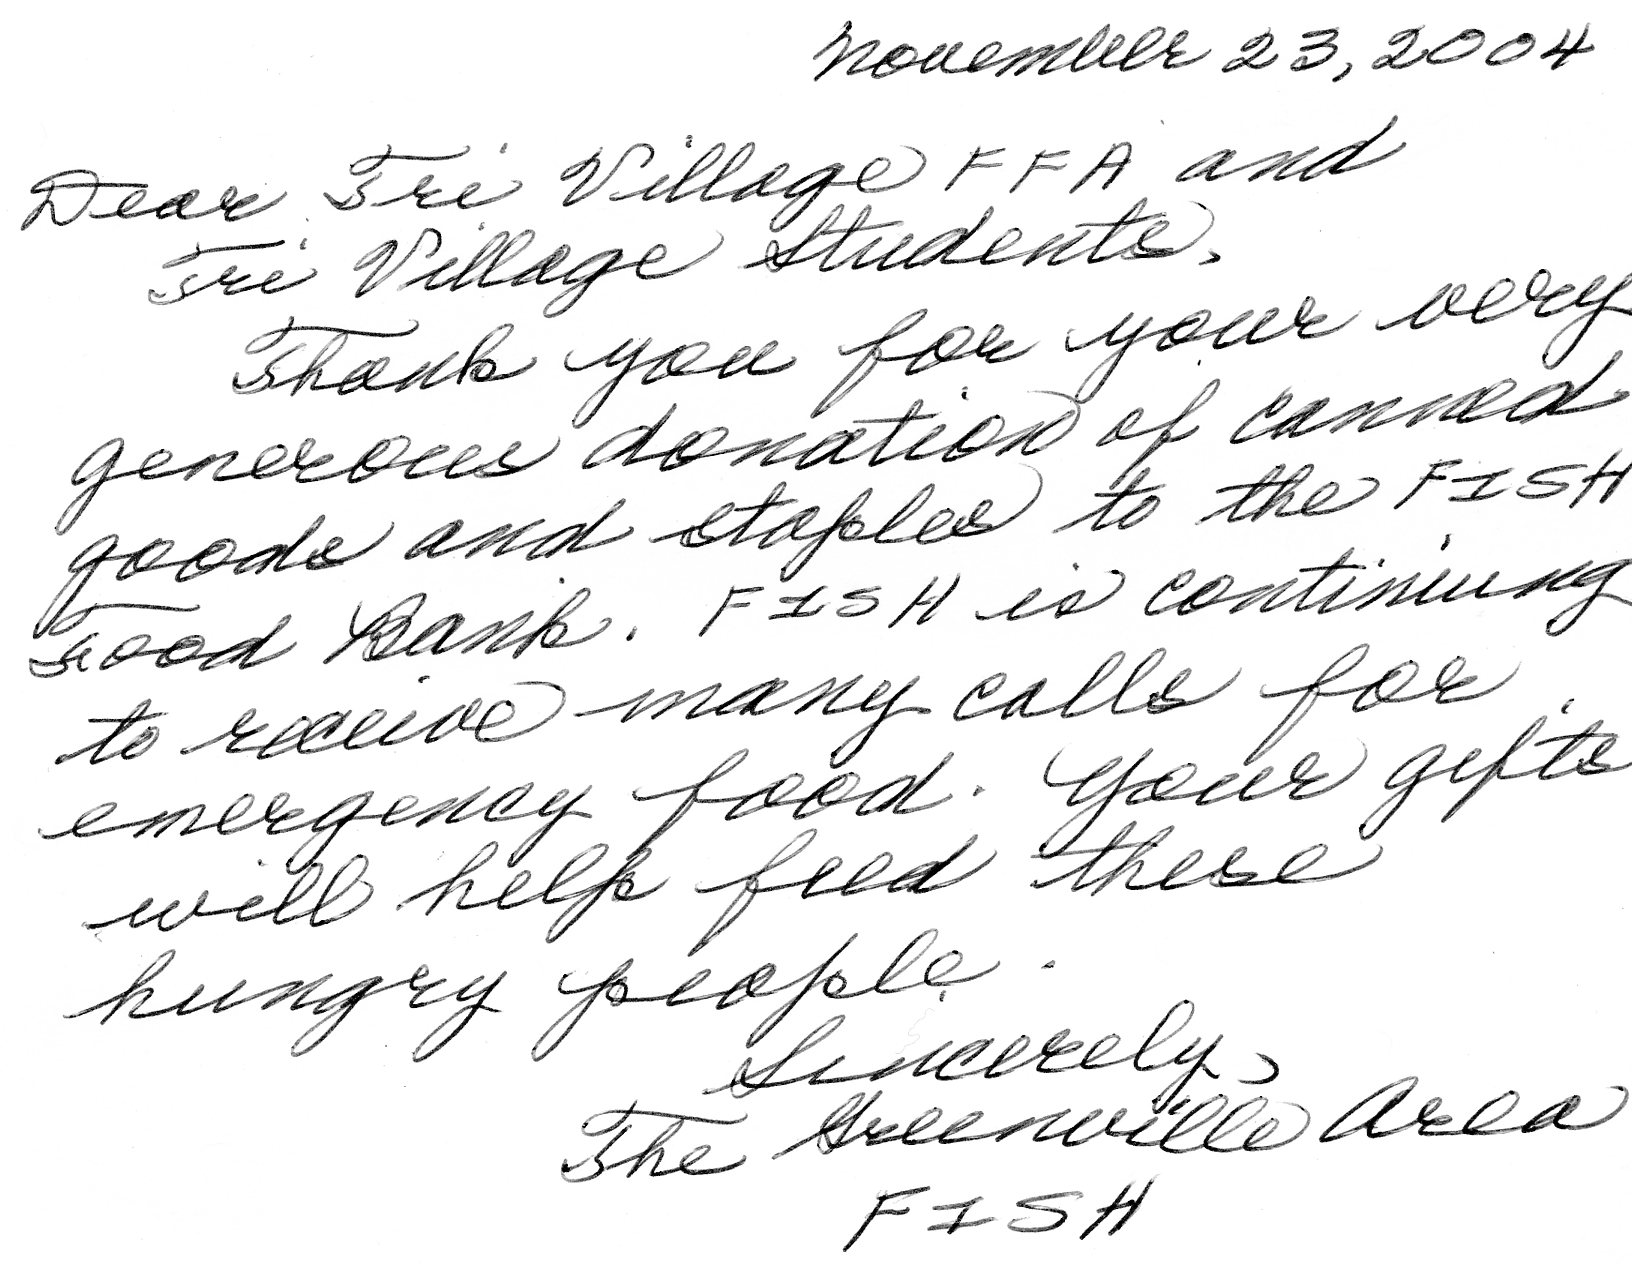 November 23, 2004
Dear Tri Village FFA and
Tri Village Students,
Thank you for your very
generous donation of canned
goods and staples to the FISH
Food Bank. FISH is continuing
to receive many calls for
emergency food. Your gifts
will help feed these
hungry people.
Sincerely,
The Greenville Area
FISH